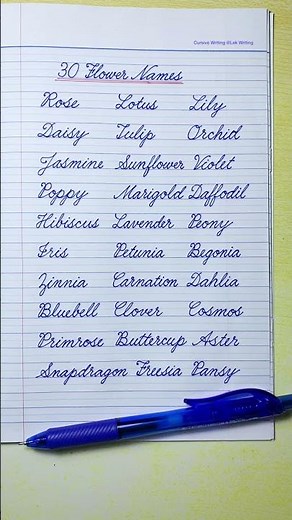 Cursive Writing @Lek Writing
30 Flower Names
Rose Lotus Lily
Daisy Tulip Orchid
Jasmine Sunflower Violet
Poppy Marigold Daffodil
Hibiscus Lavender Peony
Iris Petunia Begonia
Zinnia Carnation Dahlia
Bluebell Clover Cosmos
Primrose Buttercup Aster
Snapdragon Freesia Pansy